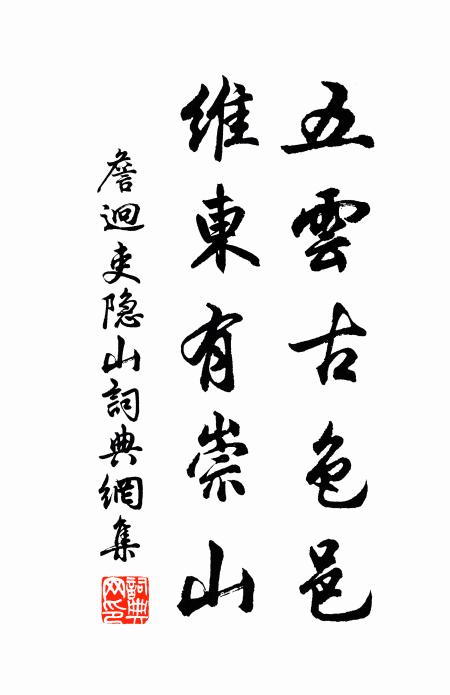 五雲古色邑
維東有崇山
詹迥吏隐山詞典網集
詞典
网印